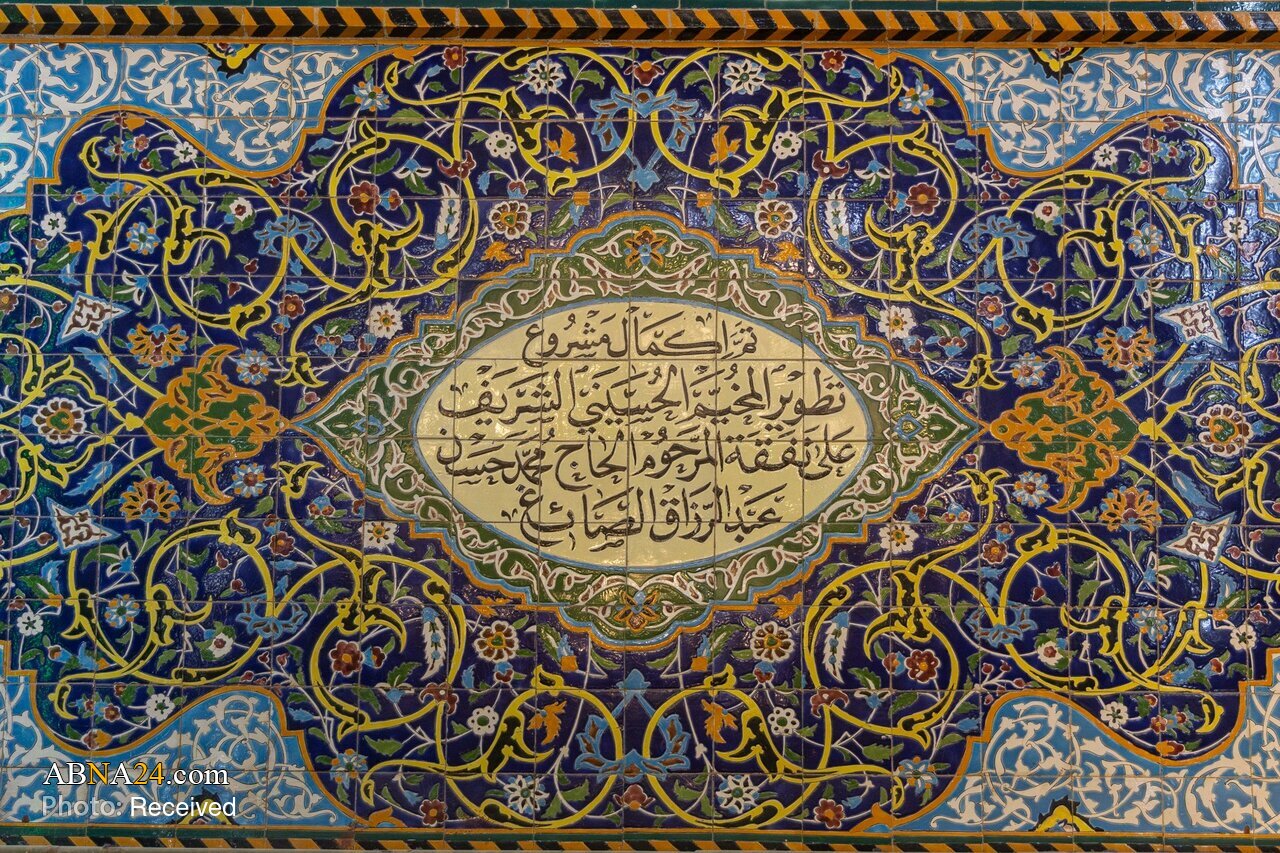 تم اكمال مشروع
تطوير المخيم الحسيني الشريف
على نفقة المرحوم الحاج محمد حسان
عبد الرزاق الصائغ
ABNA24.com
Photo: Received